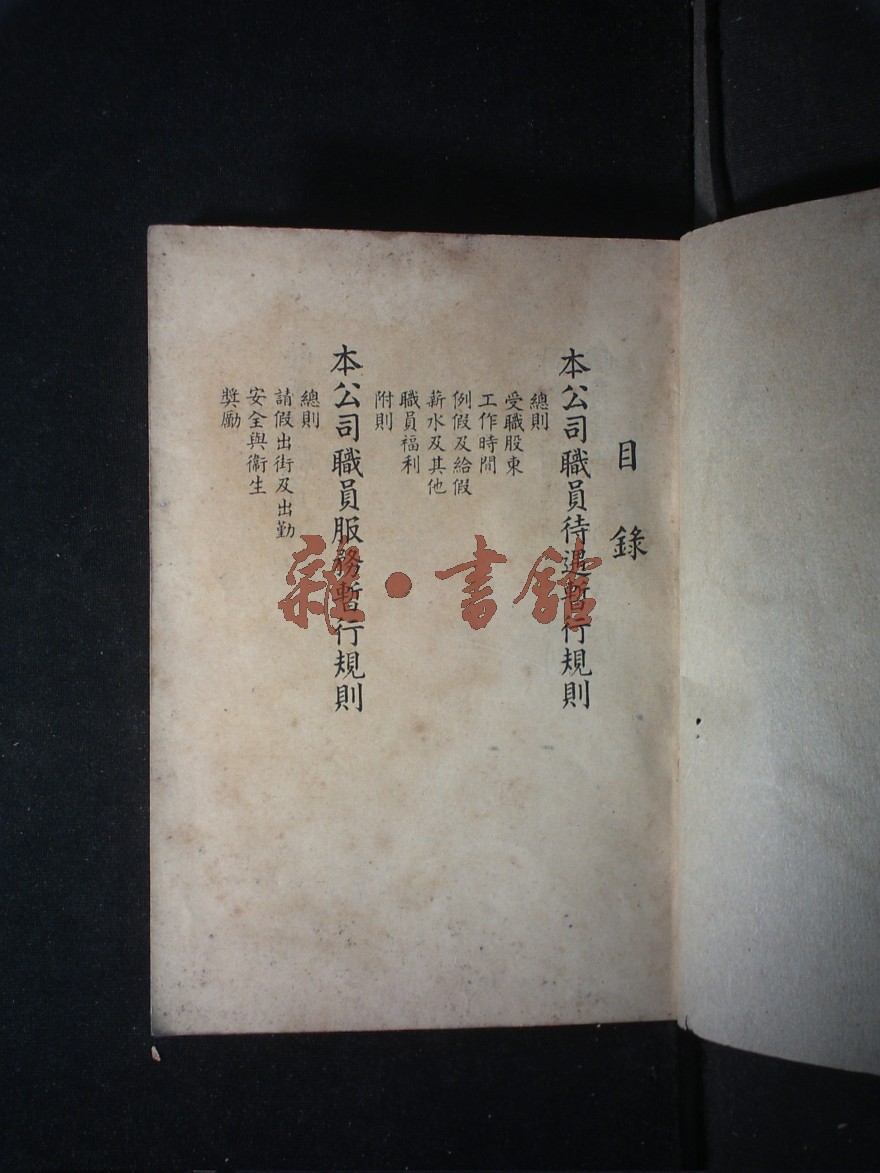 目錄
本公司職員待遇暫行規則
總則
受職股東
工作時間
例假及給假
薪水及其他
職員福利
附則
本公司職員服務暫行規則
總則
請假出街及出勤
安全與衞生
獎勵
雜·書館